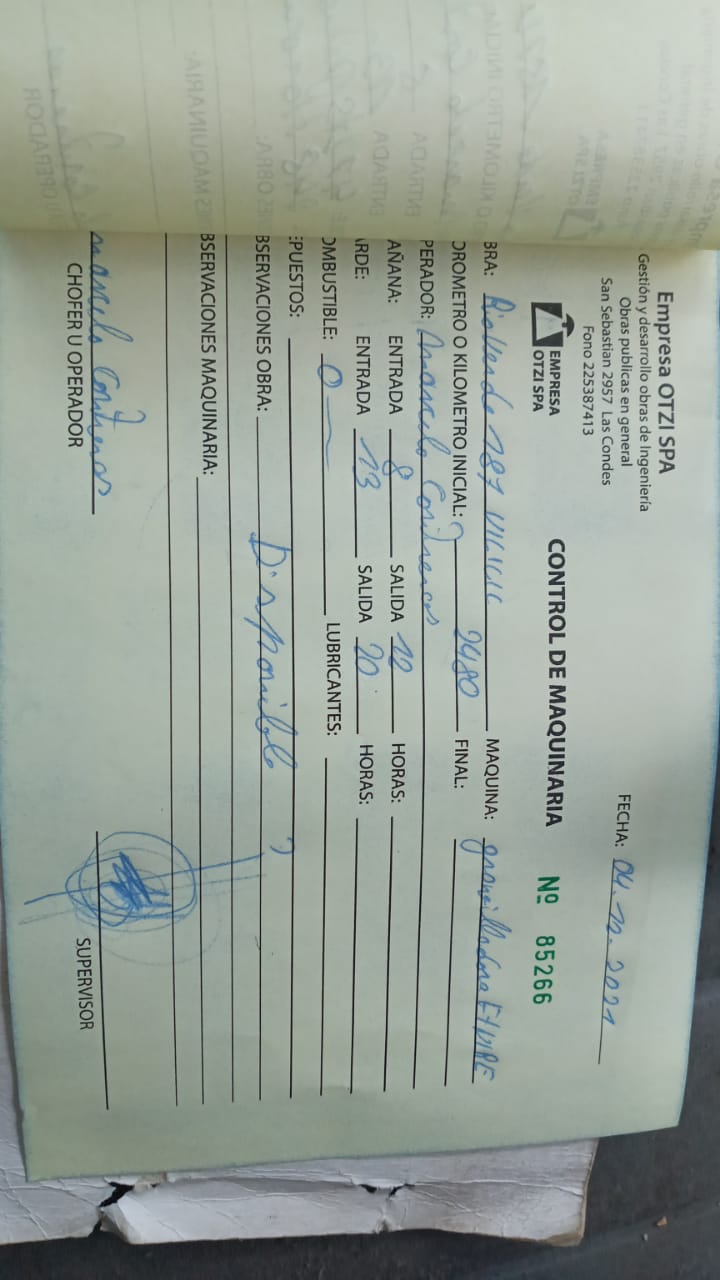 Empresa OTZI SPA
Gestión y desarrollo obras de Ingeniería
Obras publicas en general
San Sebastian 2957 Las Condes
Fono 225387413
FECHA: 04.12.2021
EMPRESA
OTZI SPA
CONTROL DE MAQUINARIA Nº 85266
BRA: Rio Verde 187 MAQUINA: gravilladora
OROMETRO O KILOMETRO INICIAL: 2480 FINAL:
PERADOR: Marcelo Contreras
AÑANA: ENTRADA 8 SALIDA 12 HORAS:
ARDE: ENTRADA 13 SALIDA 20 HORAS:
OMBUSTIBLE: 0 LUBRICANTES:
EPUESTOS:
BSERVACIONES OBRA: Disponible
BSERVACIONES MAQUINARIA:
marcelo Contreras
CHOFER U OPERADOR
SUPERVISOR